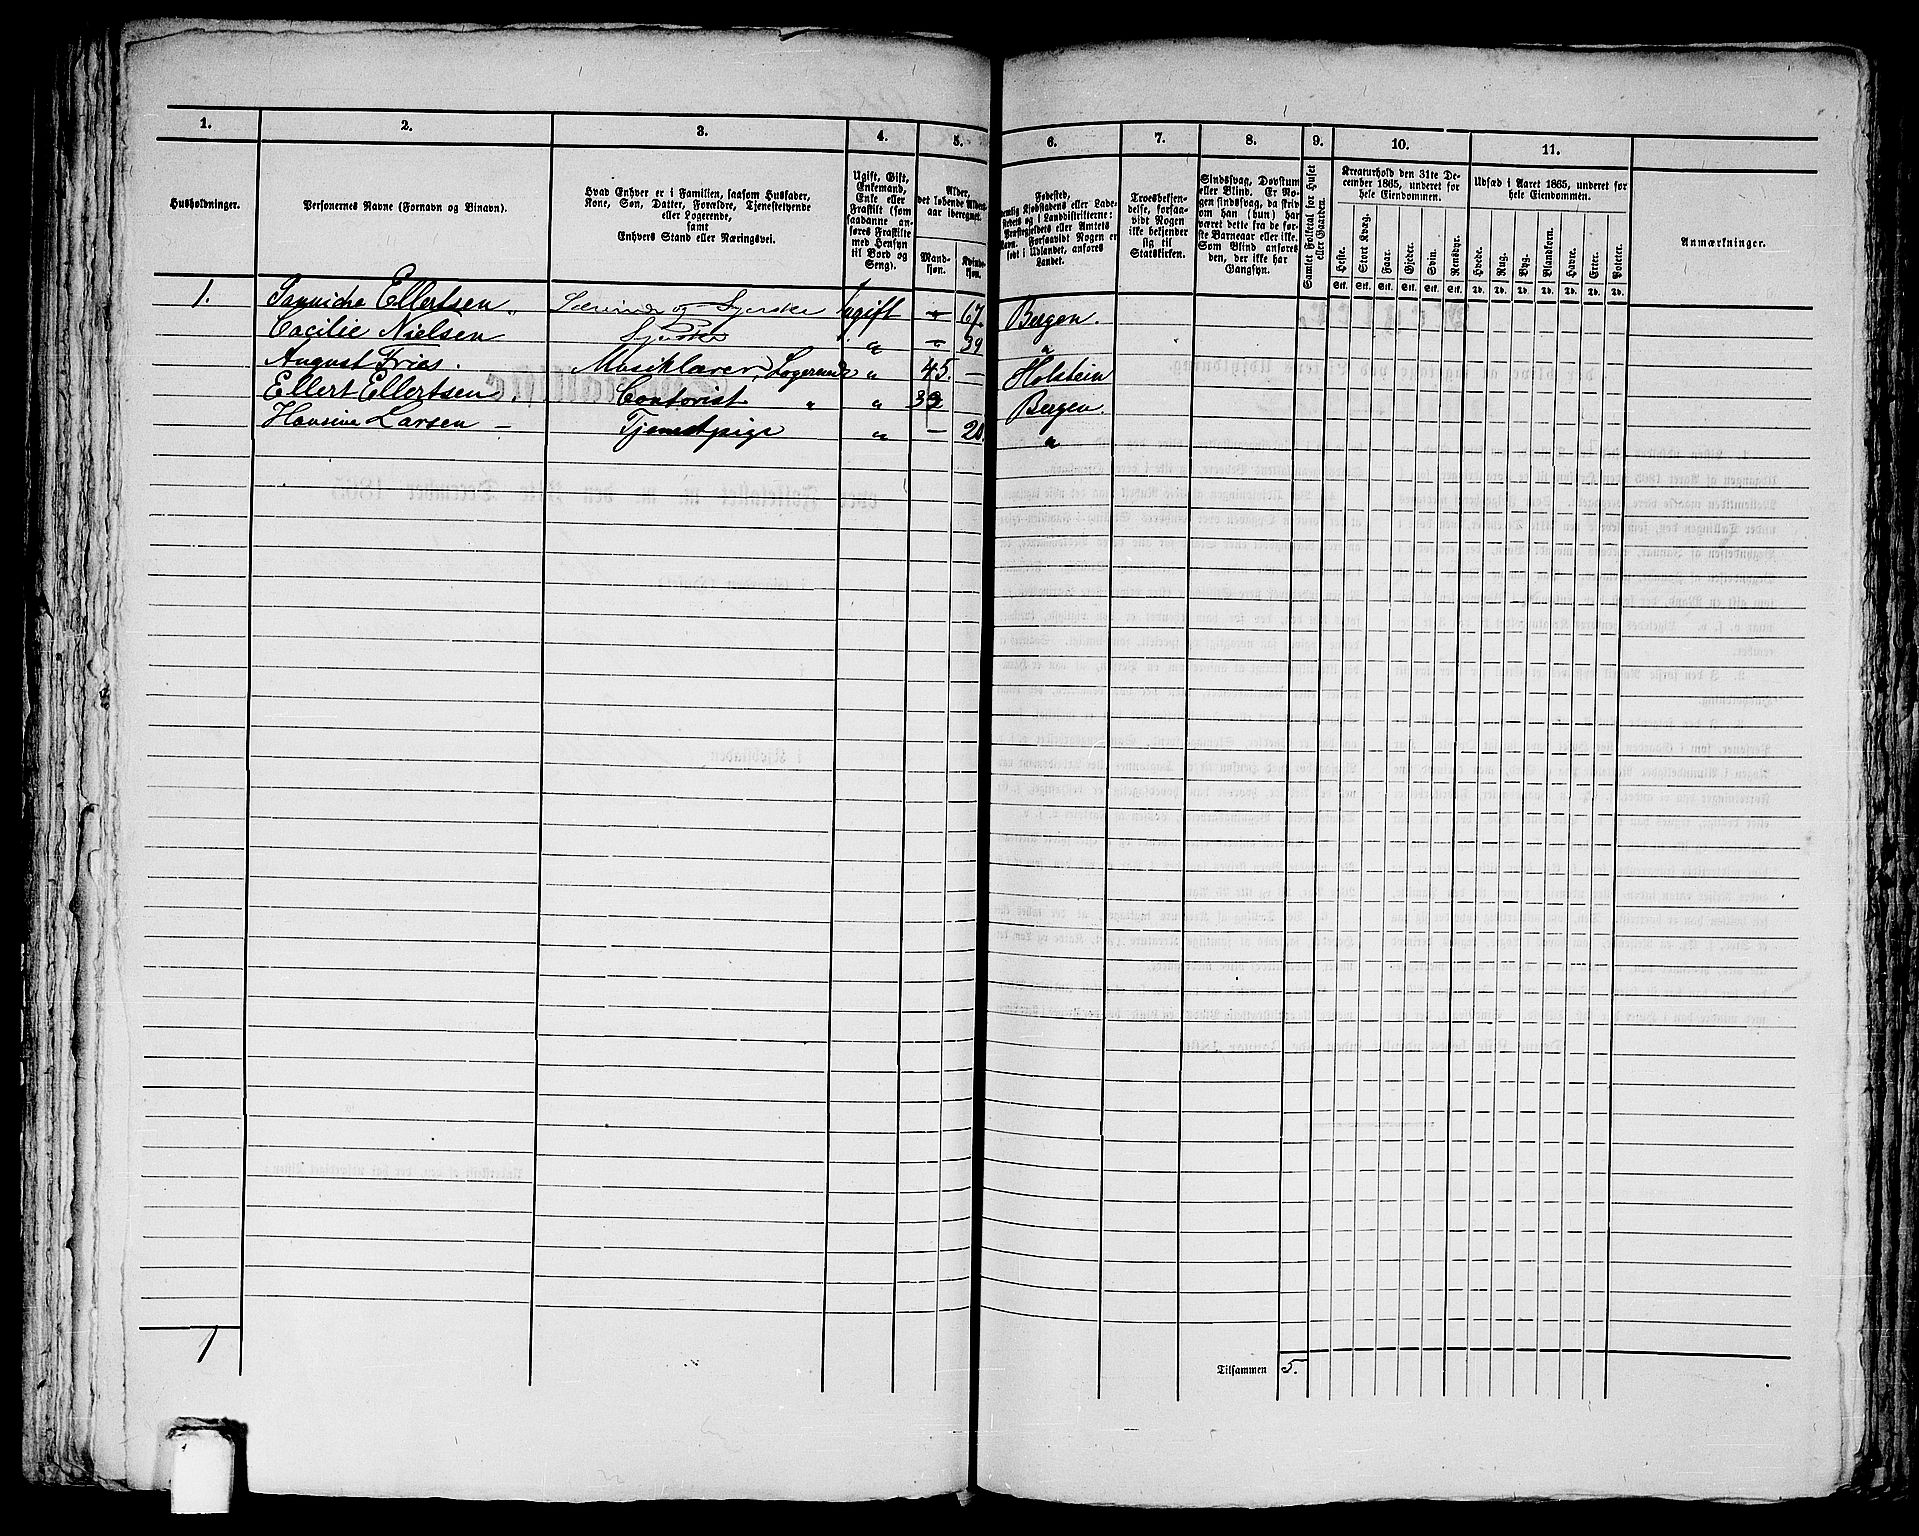 1. 2. 3. 4. 5. 6. 7. 8. 9. 10. 11.
Husholdninger.
Personernes Navne (Fornavn og Binavn).
Hvad Enhver er i Familien, saasom Husfader,
Kone, Søn, Datter, Forældre, Tjenestetyende
eller Logerende,
samt
Enhvers Stand eller Næringsvei.
Ugift, Gift,
Enkemand,
Enke eller
Fraskilt (som
saadanne an-
føres Fraskilte
med Hensyn
til Bord og
Seng).
Alder,
det løbende Alders-
aar iberegnet.
Mand-
kjøn.
Kvinde-
kjøn.
Fødested,
nemlig Kjøbstadens eller Lade-
stedets og i Landdistrikterne:
Præstegjeldets eller Amtets
Navn. Forsaavidt Nogen er
født i Udlandet, anføres
Landet.
Troesbekjen-
delse, forsaa-
vidt Nogen
ikke bekjender
sig til
Statskirken.
Sindssvag, Døvstum
eller Blind. Er No-
gen sindssvag, da skriv
om han (hun) har
været dette fra de før-
ste Barneaar eller ikke.
Som Blind anføres
den, der ikke har
Gangsyn.
Samlet Folketal for Huset
eller Gaarden.
Kreaturhold den 31te De-
cember 1865, underet for
hele Eiendommen.
Heste. Stort Kvæg. Faar. Gjeder. Svin. Rensdyr.
Stk. Stk. Stk. Stk. Stk. Stk.
Udsæd i Aaret 1865, underet for
hele Eiendommen.
Hvede. Rug. Byg. Blandkorn. Havre. Erter. Poteter.
Td. Td. Td. Td. Td. Td. Td.
Anmærkninger.
1. Ellertsen og Syerske Ugift " 67. Bergen.
Cacilie Nielsen Syerske " " 39 "
August Fries. Musiklærer, Logerende " 45. — Holstein
Ellert Ellertsen. Contorist " " Bergen.
Hansine Larsen — Tjenestpige " — "
1
Tilsammen 5.